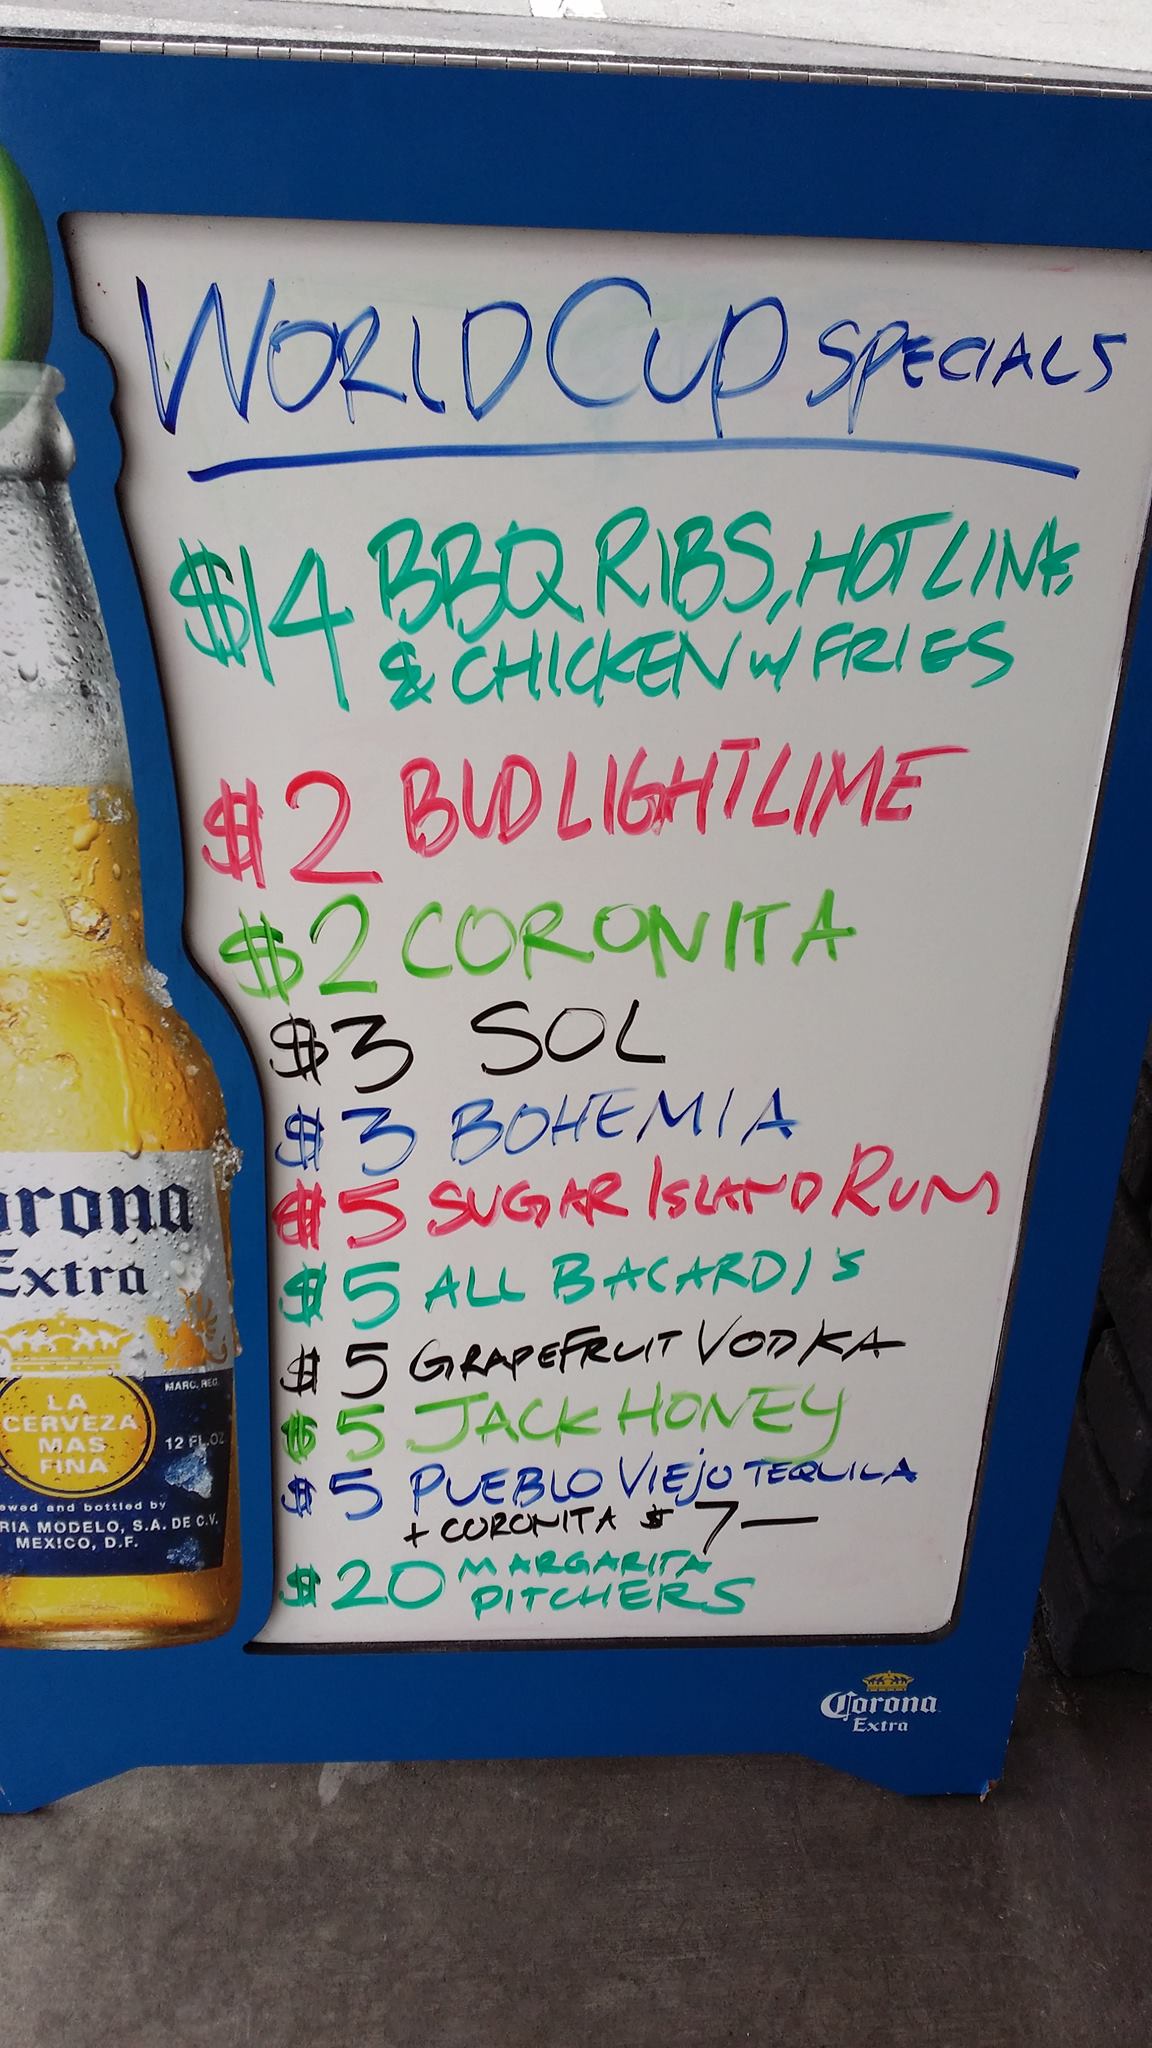 WORLD CUP SPECIALS
$14 BBQ RIBS, HOTLINK,
& CHICKEN w/ FRIES
$2 BUD LIGHT LIME
$2 CORONITA
$3 SOL
$3 BOHEMIA
$5 SUGAR ISLAND RUM
$5 ALL BACARDI'S
$5 GRAPEFRUIT VODKA
$5 JACK HONEY
$5 PUEBLO VIEJO TEQUILA
+ CORONITA $7—
$20 MARGARITA
PITCHERS
orona
Extra
MARC. REG.
LA
CERVEZA
MAS
FINA
12 FL.OZ
ewed and bottled by
RIA MODELO, S.A. DE C.V.
MEXICO, D.F.
Corona
Extra